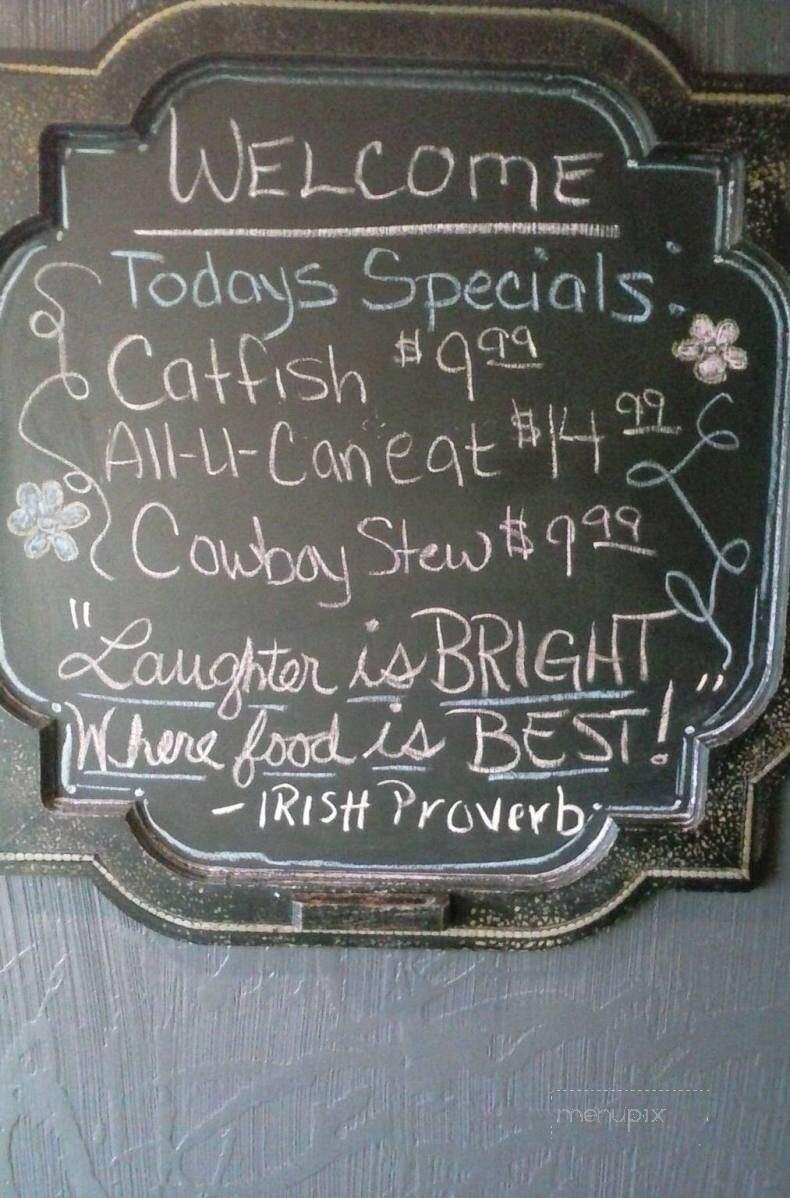 WELCOME
Todays Specials:
Catfish $9.99
All-U-Can eat $14.99
Cowboy Stew $9.99
"Laughter is BRIGHT
Where food is BEST!"
- IRISH Proverb
menupix